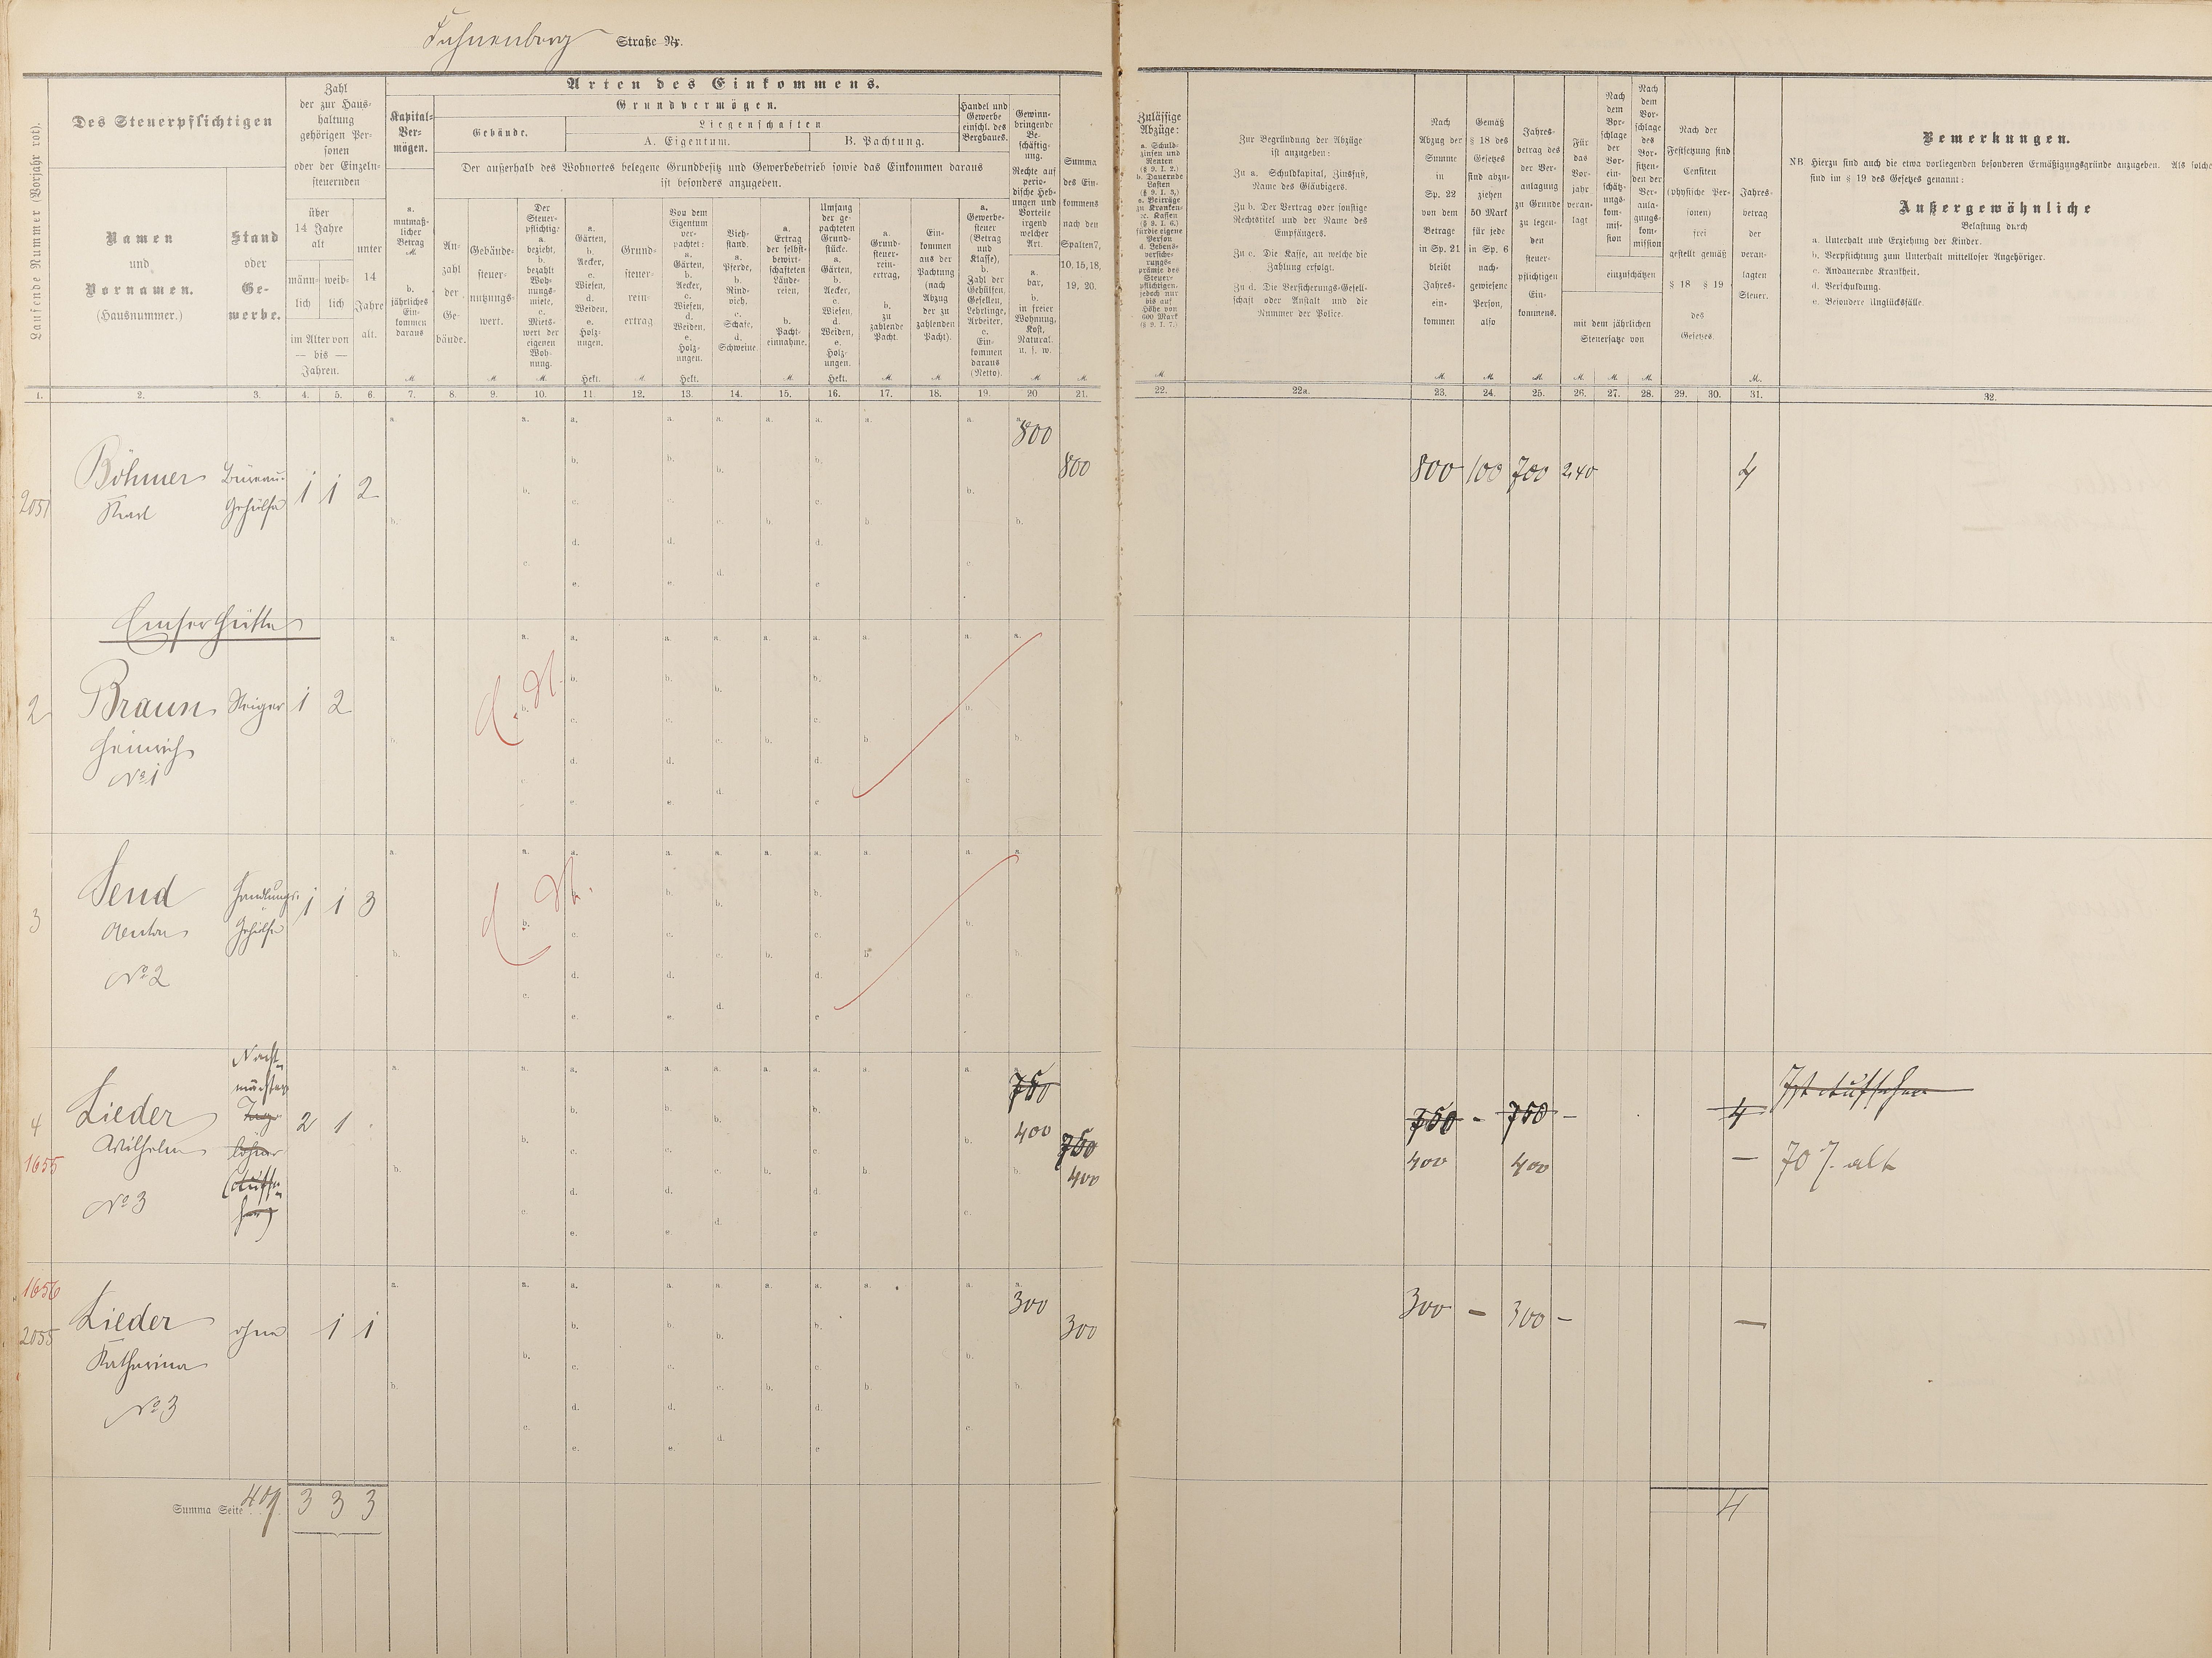 Straße Nr.
Laufende Nummer (Vorjahr rot).
Des Steuerpflichtigen
Namen
und
Vornamen.
(Hausnummer.)
Stand
oder
Ge-
werbe.
Zahl
der zur Haus-
haltung
gehörigen Per-
sonen
oder der Einzeln-
steuernden
über
14 Jahre
alt
männ-
lich
weib-
lich
im Alter von
— bis —
Jahren.
unter
14
Jahre
alt.
Arten des Einkommens.
Kapital-
Ver-
mögen.
a.
mutmaß-
licher
Betrag
M.
b.
jährliches
Ein-
kommen
daraus
M.
Grundvermögen.
Gebäude.
Liegenschaften
A. Eigentum.
B. Pachtung.
Der außerhalb des Wohnortes belegene Grundbesitz und Gewerbebetrieb sowie das Einkommen daraus
ist besonders anzugeben.
An-
zahl
der
Ge-
bäude.
Gebäude-
steuer-
nutzungs-
wert.
M.
Der
Steuer-
pflichtig:
a.
bezieht,
b.
bezahlt
Woh-
nungs-
miete,
c.
Miets-
wert der
eigenen
Woh-
nung.
M.
a.
Gärten,
b.
Aecker,
c.
Wiesen,
d.
Weiden,
e.
Holz-
ungen.
Hekt.
Grund-
steuer-
rein-
ertrag
M.
Von dem
Eigentum
ver-
pachtet:
a.
Gärten,
b.
Aecker,
c.
Wiesen,
d.
Weiden,
e.
Holz-
ungen.
Hekt.
Vieh-
stand.
a.
Pferde,
b.
Rind-
vieh,
c.
Schafe,
d.
Schweine.
a.
Ertrag
der selbst-
bewirt-
schafteten
Lände-
reien,
b.
Pacht-
einnahme.
M.
Umfang
der ge-
pachteten
Grund-
stücke.
a.
Gärten,
b.
Aecker,
c.
Wiesen,
d.
Weiden,
e.
Holz-
ungen.
Hekt.
a.
Grund-
steuer-
rein-
ertrag,
b.
zu
zahlende
Pacht.
M.
Ein-
kommen
aus der
Pachtung
(nach
Abzug
der zu
zahlenden
Pacht).
M.
Handel und
Gewerbe
einschl. des
Bergbaues.
a.
Gewerbe-
steuer
(Betrag
und
Klasse),
b.
Zahl der
Gehülfen,
Gesellen,
Lehrlinge,
Arbeiter,
c.
Ein-
kommen
daraus
(Netto).
Gewinn-
bringende
Be-
schäftig-
ung.
Rechte auf
perio-
dische Heb-
ungen und
Vorteile
irgend
welcher
Art.
a.
bar,
b.
in freier
Wohnung,
Kost,
Natural.
u. s. w.
M.
Summa
des Ein-
kommens
nach den
Spalten 7,
10, 15, 18,
19, 20.
M.
Zulässige
Abzüge:
a. Schuld-
zinsen und
Renten
(§ 9. I. 2.)
b. Dauernde
Lasten
(§ 9. I. 3.)
c. Beiträge
zu Kranken-
ec. Kassen
(§ 9. I. 6.)
für die eigene
Person
d. Lebens-
versiche-
rungs-
prämie des
Steuer-
pflichtigen,
jedoch nur
bis auf
Höhe von
600 Mark
(§ 9. I. 7.)
M.
Zur Begründung der Abzüge
ist anzugeben:
Zu a. Schuldkapital, Zinsfuß,
Name des Gläubigers.
Zu b. Der Vertrag oder sonstige
Rechtstitel und der Name des
Empfängers.
Zu c. Die Kasse, an welche die
Zahlung erfolgt.
Zu d. Die Versicherungs-Gesell-
schaft oder Anstalt und die
Nummer der Police.
Nach
Abzug der
Summe
in
Sp. 22
von dem
Betrage
in Sp. 21
bleibt
Jahres-
ein-
kommen
M.
Gemäß
§ 18 des
Gesetzes
sind abzu-
ziehen
50 Mark
für jede
in Sp. 6
nach-
gewiesene
Person,
also
M.
Jahres-
betrag des
der Ver-
anlagung
zu Grunde
zu legen-
den
steuer-
pflichtigen
Ein-
kommens.
M.
Für
das
Vor-
jahr
veran-
lagt
M.
Nach
dem
Vor-
schlage
der
Vor-
ein-
schätz-
ungs-
kom-
mis-
sion
Nach
dem
Vor-
schlage
des
Vor-
sitzen-
den der
Ver-
anla-
gungs-
kom-
mission
einzuschätzen
mit dem jährlichen
Steuersatze von
M. M.
Nach der
Festsetzung sind
Censiten
(physische Per-
sonen)
frei
gestellt gemäß
§ 18 § 19
des
Gesetzes.
Jahres-
betrag
der
veran-
lagten
Steuer.
M.
Bemerkungen.
NB Hierzu sind auch die etwa vorliegenden besonderen Ermäßigungsgründe anzugeben. Als solche
sind im § 19 des Gesetzes genannt:
Außergewöhnliche
Belastung durch
a. Unterhalt und Erziehung der Kinder.
b. Verpflichtung zum Unterhalt mittelloser Angehöriger.
c. Andauernde Krankheit.
d. Verschuldung.
e. Besondere Unglücksfälle.
1. 2. 3. 4. 5. 6. 7. 8. 9. 10. 11. 12. 13. 14. 15. 16. 17. 18. 19. 20 21. 22. 22a. 23. 24. 25. 26. 27. 28. 29. 30. 31. 32.
2051 Böhmer Büreau- 1 1 2 800 800 800 100 700 2,40 4
Karl Gehülfe
Emser Hütte
2 Braun Steiger 1 2
Heinrich
No 1
3 Send Handlungs- 1 1 3
Anton Gehülfe
No 2
4 Lieder Nacht-
wächter
Tage-
löhner
2 1 750 750 750 - 750 - 4 Ist Aufseher
1655 Wilhelm 400 400 400 400 — 70 J. alt
No 3
1656
2055 Lieder ohne 1 1 300 300 300 - 300 - —
Katharina
No 3
Summa Seite 409. 3 3 3 4